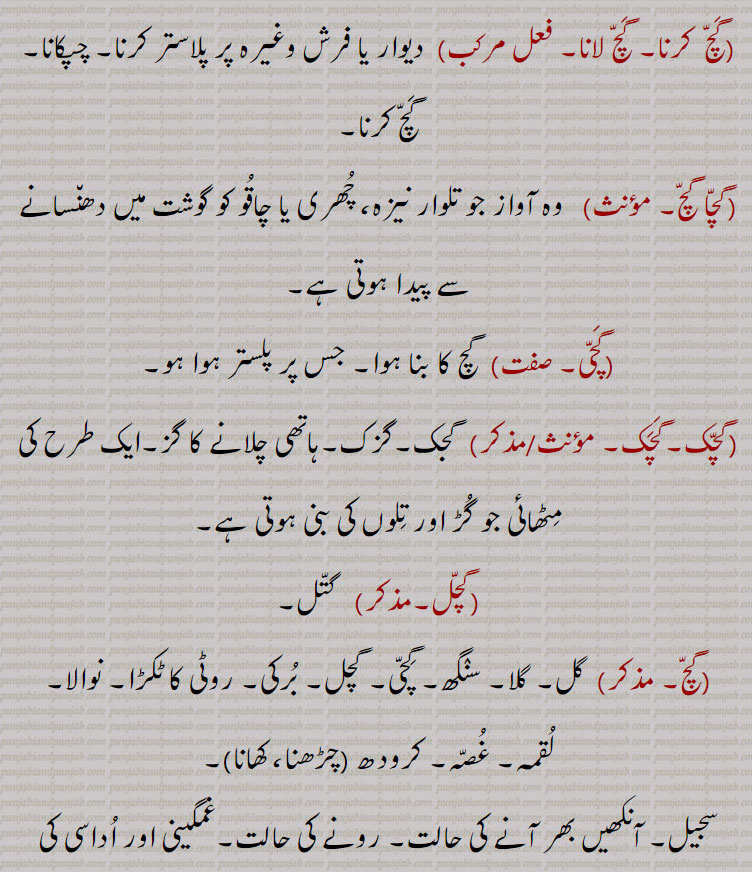 (گَچّ کرنا۔ گَچّ لانا۔ فعل مرکب) دیوار یا فرش وغیرہ پر پلاستر کرنا۔ چپکانا۔
گَچّ کرنا۔
(گچّا گچّ۔ مؤنث) وہ آواز جو تلوار نیزہ، چُھری یا چاقُو کو گوشت میں دھنّسانے
سے پیدا ہوتی ہے۔
(گَچّی۔ صفت) گچ کا بنا ہوا۔ جس پر پلستر ہوا ہو۔
(گچّک۔گچَک۔ مؤنث/مذکر) گجک۔گزک۔ہاتھی چلانے کا گز۔ایک طرح کی
مِٹھائی جو گُڑ اور تِلوں کی بنی ہوتی ہے۔
(گچّل۔مذکر) گتّل۔
(گچّ۔ مذکر) گل۔ گلا۔ سنگھ۔ گچّی۔ گچل۔ بُرکی۔ روٹی کا ٹکڑا۔ نوالا۔
لُقمہ۔ غُصّہ۔ کرودھ (چڑھنا، کھانا)۔
سجیل۔ آنکھیں بھر آنے کی حالت۔ رونے کی حالت۔ غمگینی اور اُداسی کی